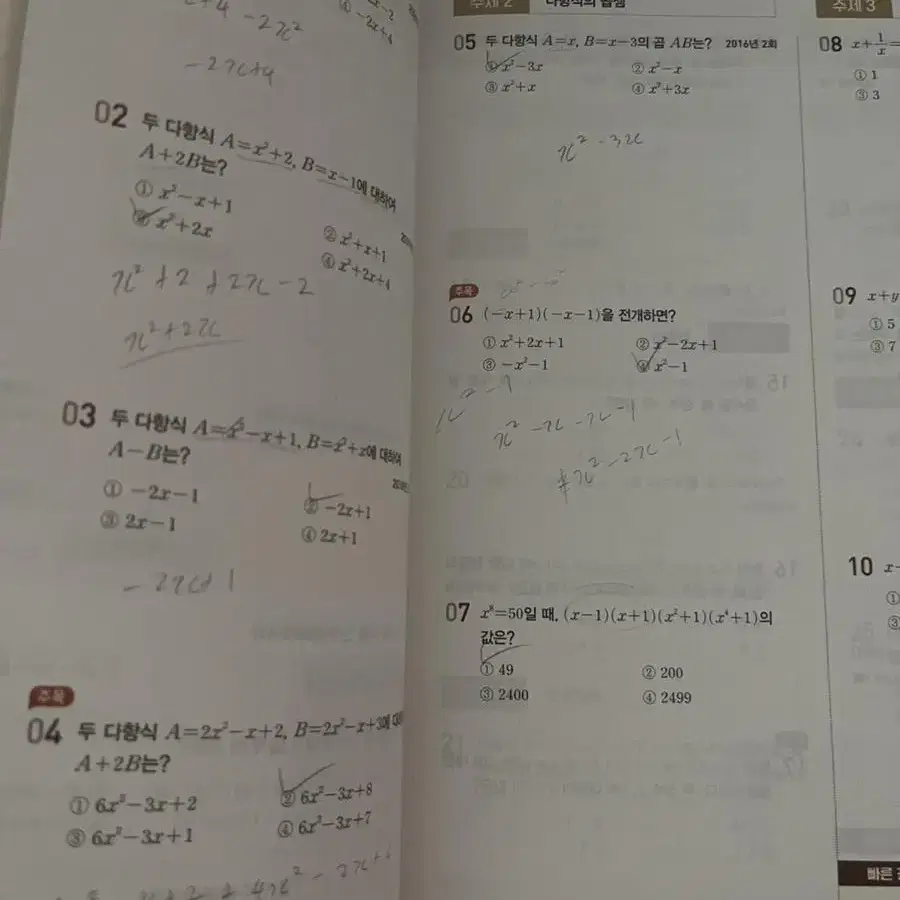 x+4 -2x²
④ -2x+4
-2x+4
02 두 다항식 A=x²+2, B=x-1에 대하여
A+2B는?
① x²-x+1
② x²+x+1
③ x²+2x
④ x²+2x+4
x²+2+2x-2
x²+2x
03 두 다항식 A=x²-x+1, B=x²+x에 대하여
A-B는?
① -2x-1
② -2x+1
③ 2x-1
④ 2x+1
-2x+1
주목
04 두 다항식 A=2x²-x+2, B=2x²-x+3에
A+2B는?
① 6x²-3x+2
② 6x²-3x+8
③ 6x²-3x+1
④ 6x²-3x+7
주제 2 다항식의 곱셈
05 두 다항식 A=x, B=x-3의 곱 AB는? 2016년 2회
① x²-3x
② x²-x
③ x²+x
④ x²+3x
x²-3x
주목
06 (-x+1)(-x-1)을 전개하면?
① x²+2x+1
② x²-2x+1
③ -x²-1
④ x²-1
x²-1
x²-x-x-1
x²-2x-1
07 x⁸=50일 때, (x-1)(x+1)(x²+1)(x⁴+1)의
값은?
① 49
② 200
③ 2400
④ 2499
주제 3
08 x+1/x=
① 1
③ 3
09 x+y
① 5
③ 7
10 x-
①
③
빠른